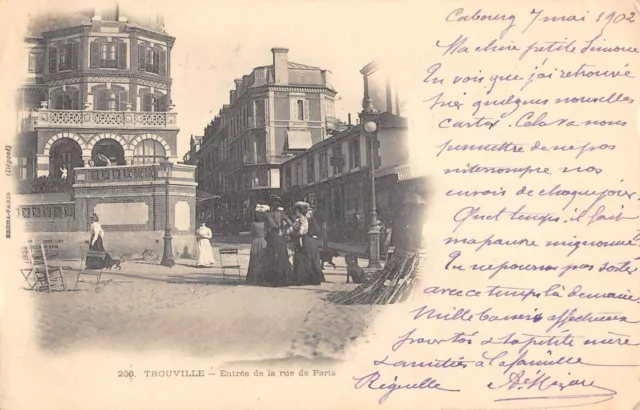 Cabourg 7 mai 1902
Ma chère petite Simone
En vois que j'ai retrouvé
hier quelques nouvelles
cartes. Cela va nous
permettre de ne pas
interrompre nos
envois de chaque jour.
Quel temps il fait
ma pauvre mignonne
Tu ne pourras pas sortir
avec ce temps là demain
Mille baisers affectueux
pour toi & ta petite mère
& amitiés à la famille
Réquelle
BERHA-PARIS (Déposé)
258. TROUVILLE — Entrée de la rue de Paris